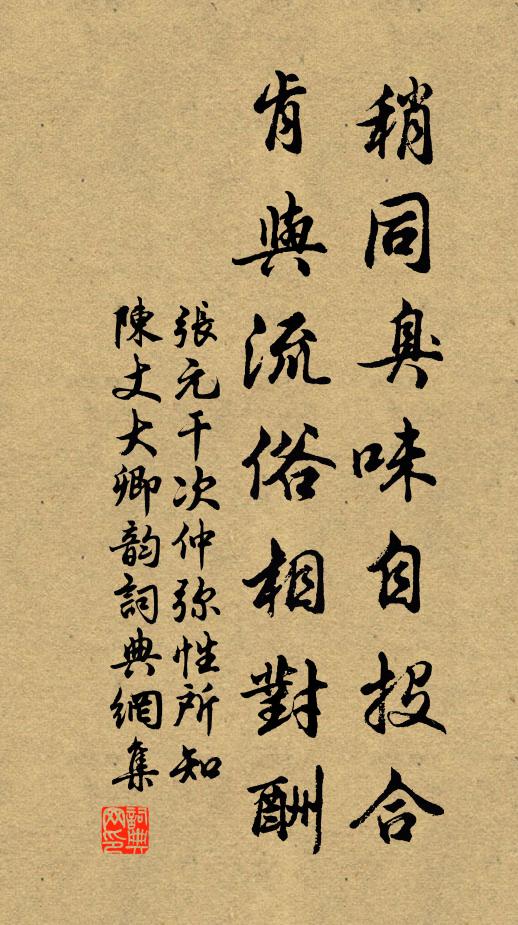 稍同臭味自投合
肯與流俗相對酬
張元干次仲弥性所知
陳丈大卿韵詞典網集
詞典網印